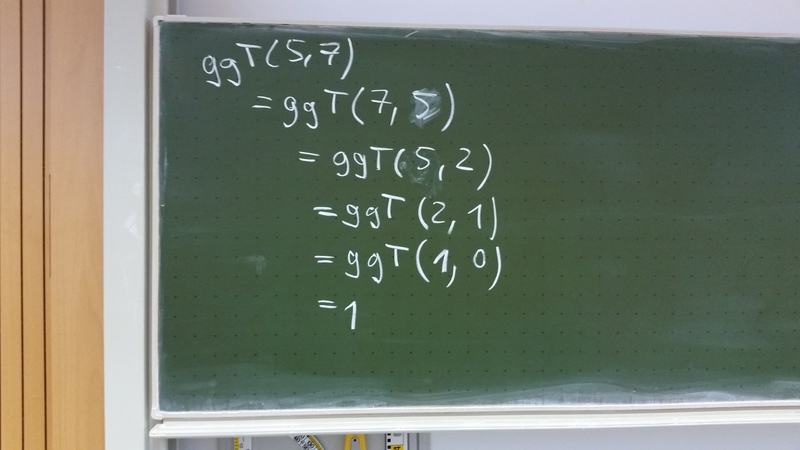 ggT(5,7)
= ggT(7, 5)
= ggT(5, 2)
= ggT (2, 1)
= ggT(1, 0)
= 1